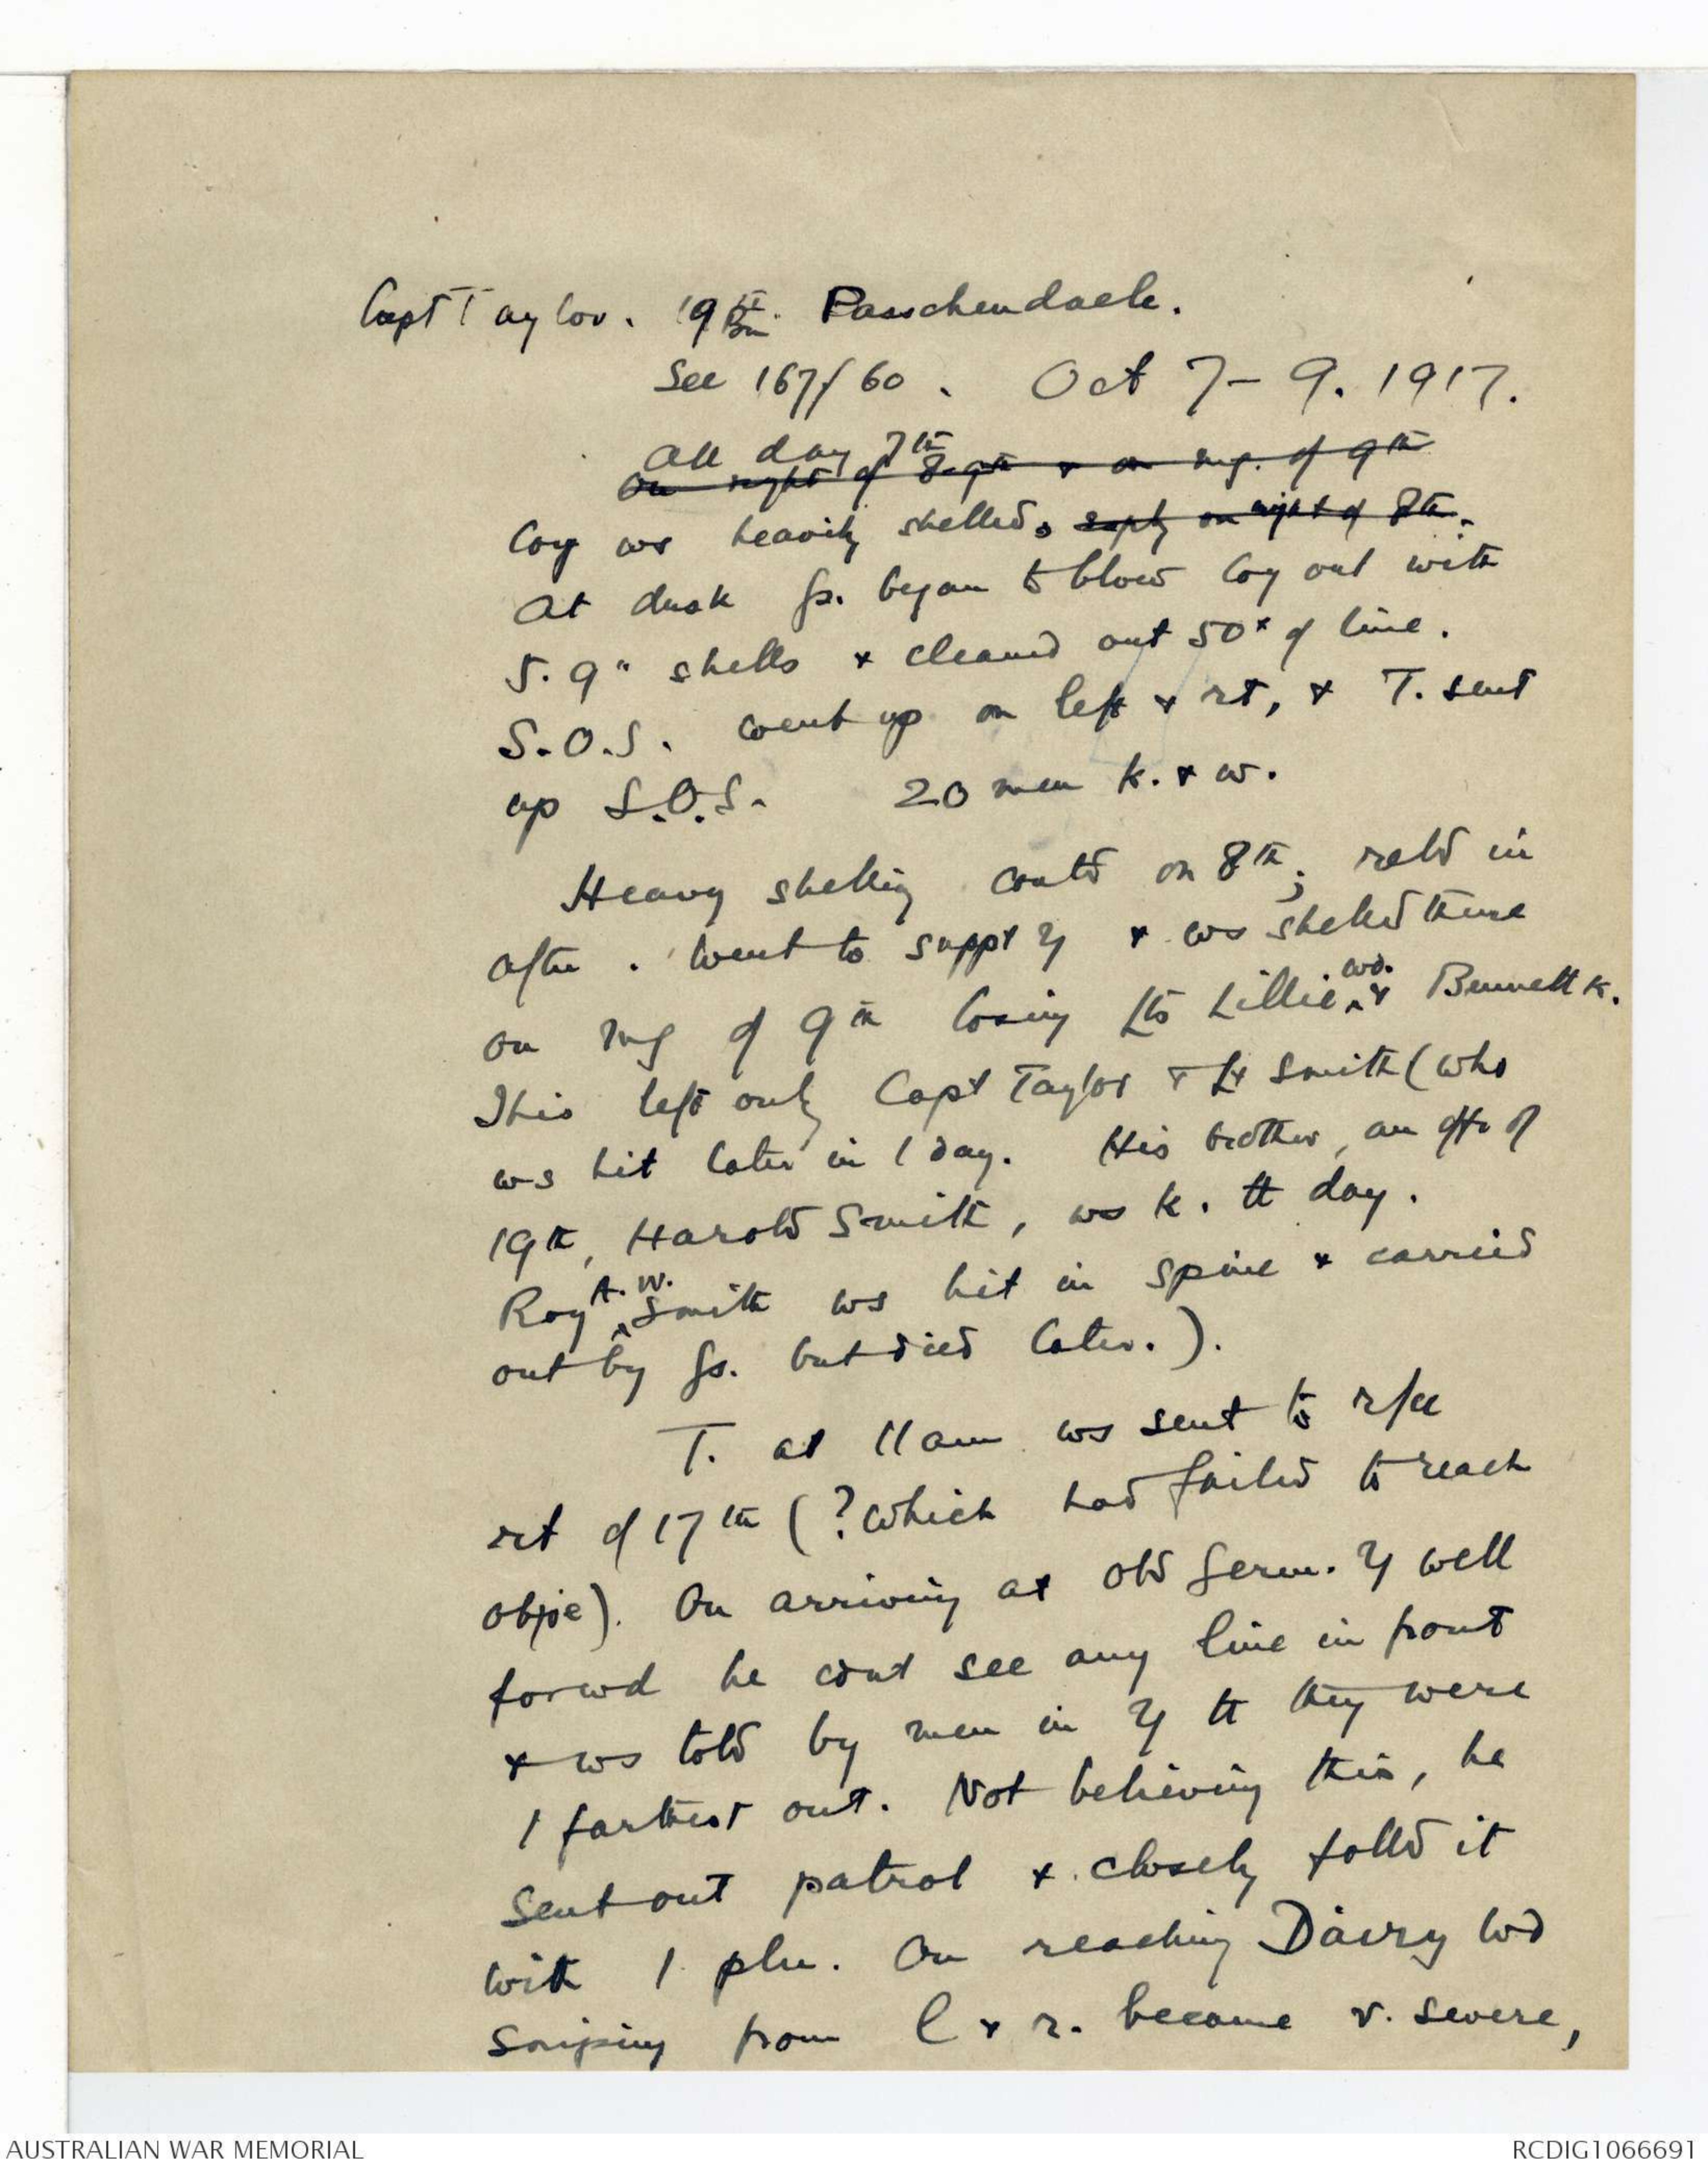 Capt Taylor. 19th Bn. Passchendaele.
See 167/60. Oct 7-9. 1917.
All day 7th
On night of 8-9th & on mg. of 9th
Coy ws heavily shelled. esply on night of 8th.
At dusk Gs. began to blow Coy out with
5.9" shells & cleaned out 50x of line.
S.O.S. went up on left & rt, & T. sent
up S.O.S. 20 men k. & w.
Heavy shelling contd on 8th; reld in
aftn. Went to suppt & ws shelled there
on mg of 9th losing Lts Lillie wd. & Bennett k.
This left only Capt Taylor & Lt Smith (who
ws hit later in / day. His brother, an offr of
19th, Harold Smith, ws k. tt day.
Roy A. W. Smith ws hit in spine & carried
out by Gs. but died later.).
T. at 11 am ws sent to r/ce
rt of 17th (? which had failed to reach
objve). On arriving at old Germ. well
forwd he cdnt see any line in front
& ws told by men in tt they were
/ farthest out. Not believing this, he
sent out patrol & closely folld it
with 1 pln. On reaching Dairy Wd
sniping from l & r. became v. severe,
AUSTRALIAN WAR MEMORIAL
RCDIG1066691